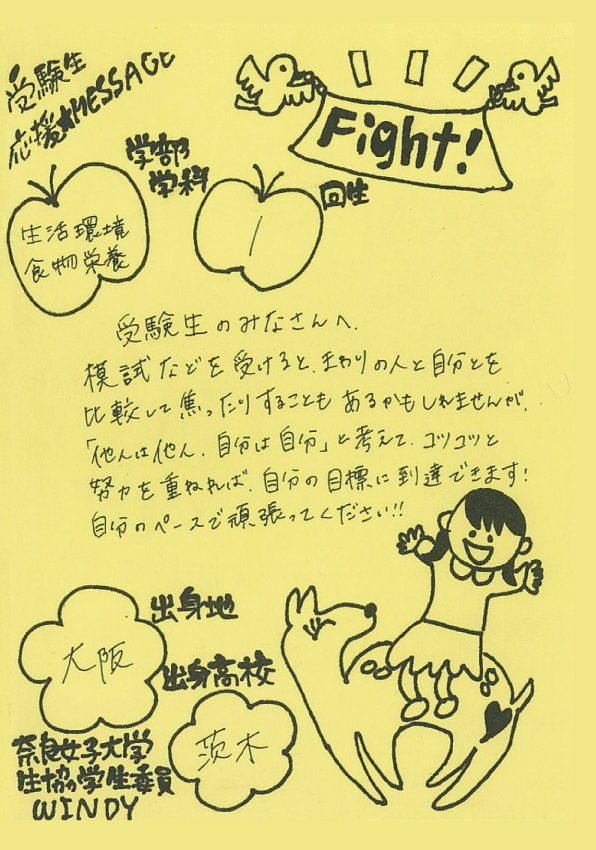 受験生
応援★MESSAGE
Fight!
学部
学科
生活環境
食物栄養
回生
1
受験生のみなさんへ.
模試などを受けると、まわりの人と自分とを
比較して焦ったりすることもあるかもしれませんが、
「他人は他人、自分は自分」と考えて、コツコツと
努力を重ねれば、自分の目標に到達できます!
自分のペースで頑張ってください!!
出身地
大阪
出身高校
茨木
奈良女子大学
生協の学生委員
WINDY